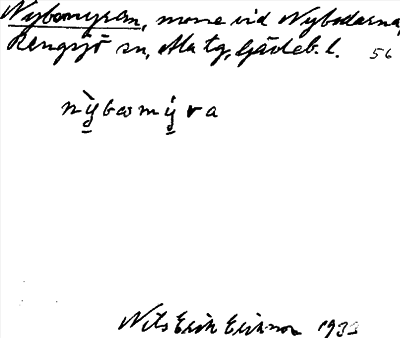 Nybomyran, mosse vid Nybodarna,
Rengsjö sn, Ala tg, Gävleb. l. 56
nỳbωmýra
Nils Erik Eriksson 1933